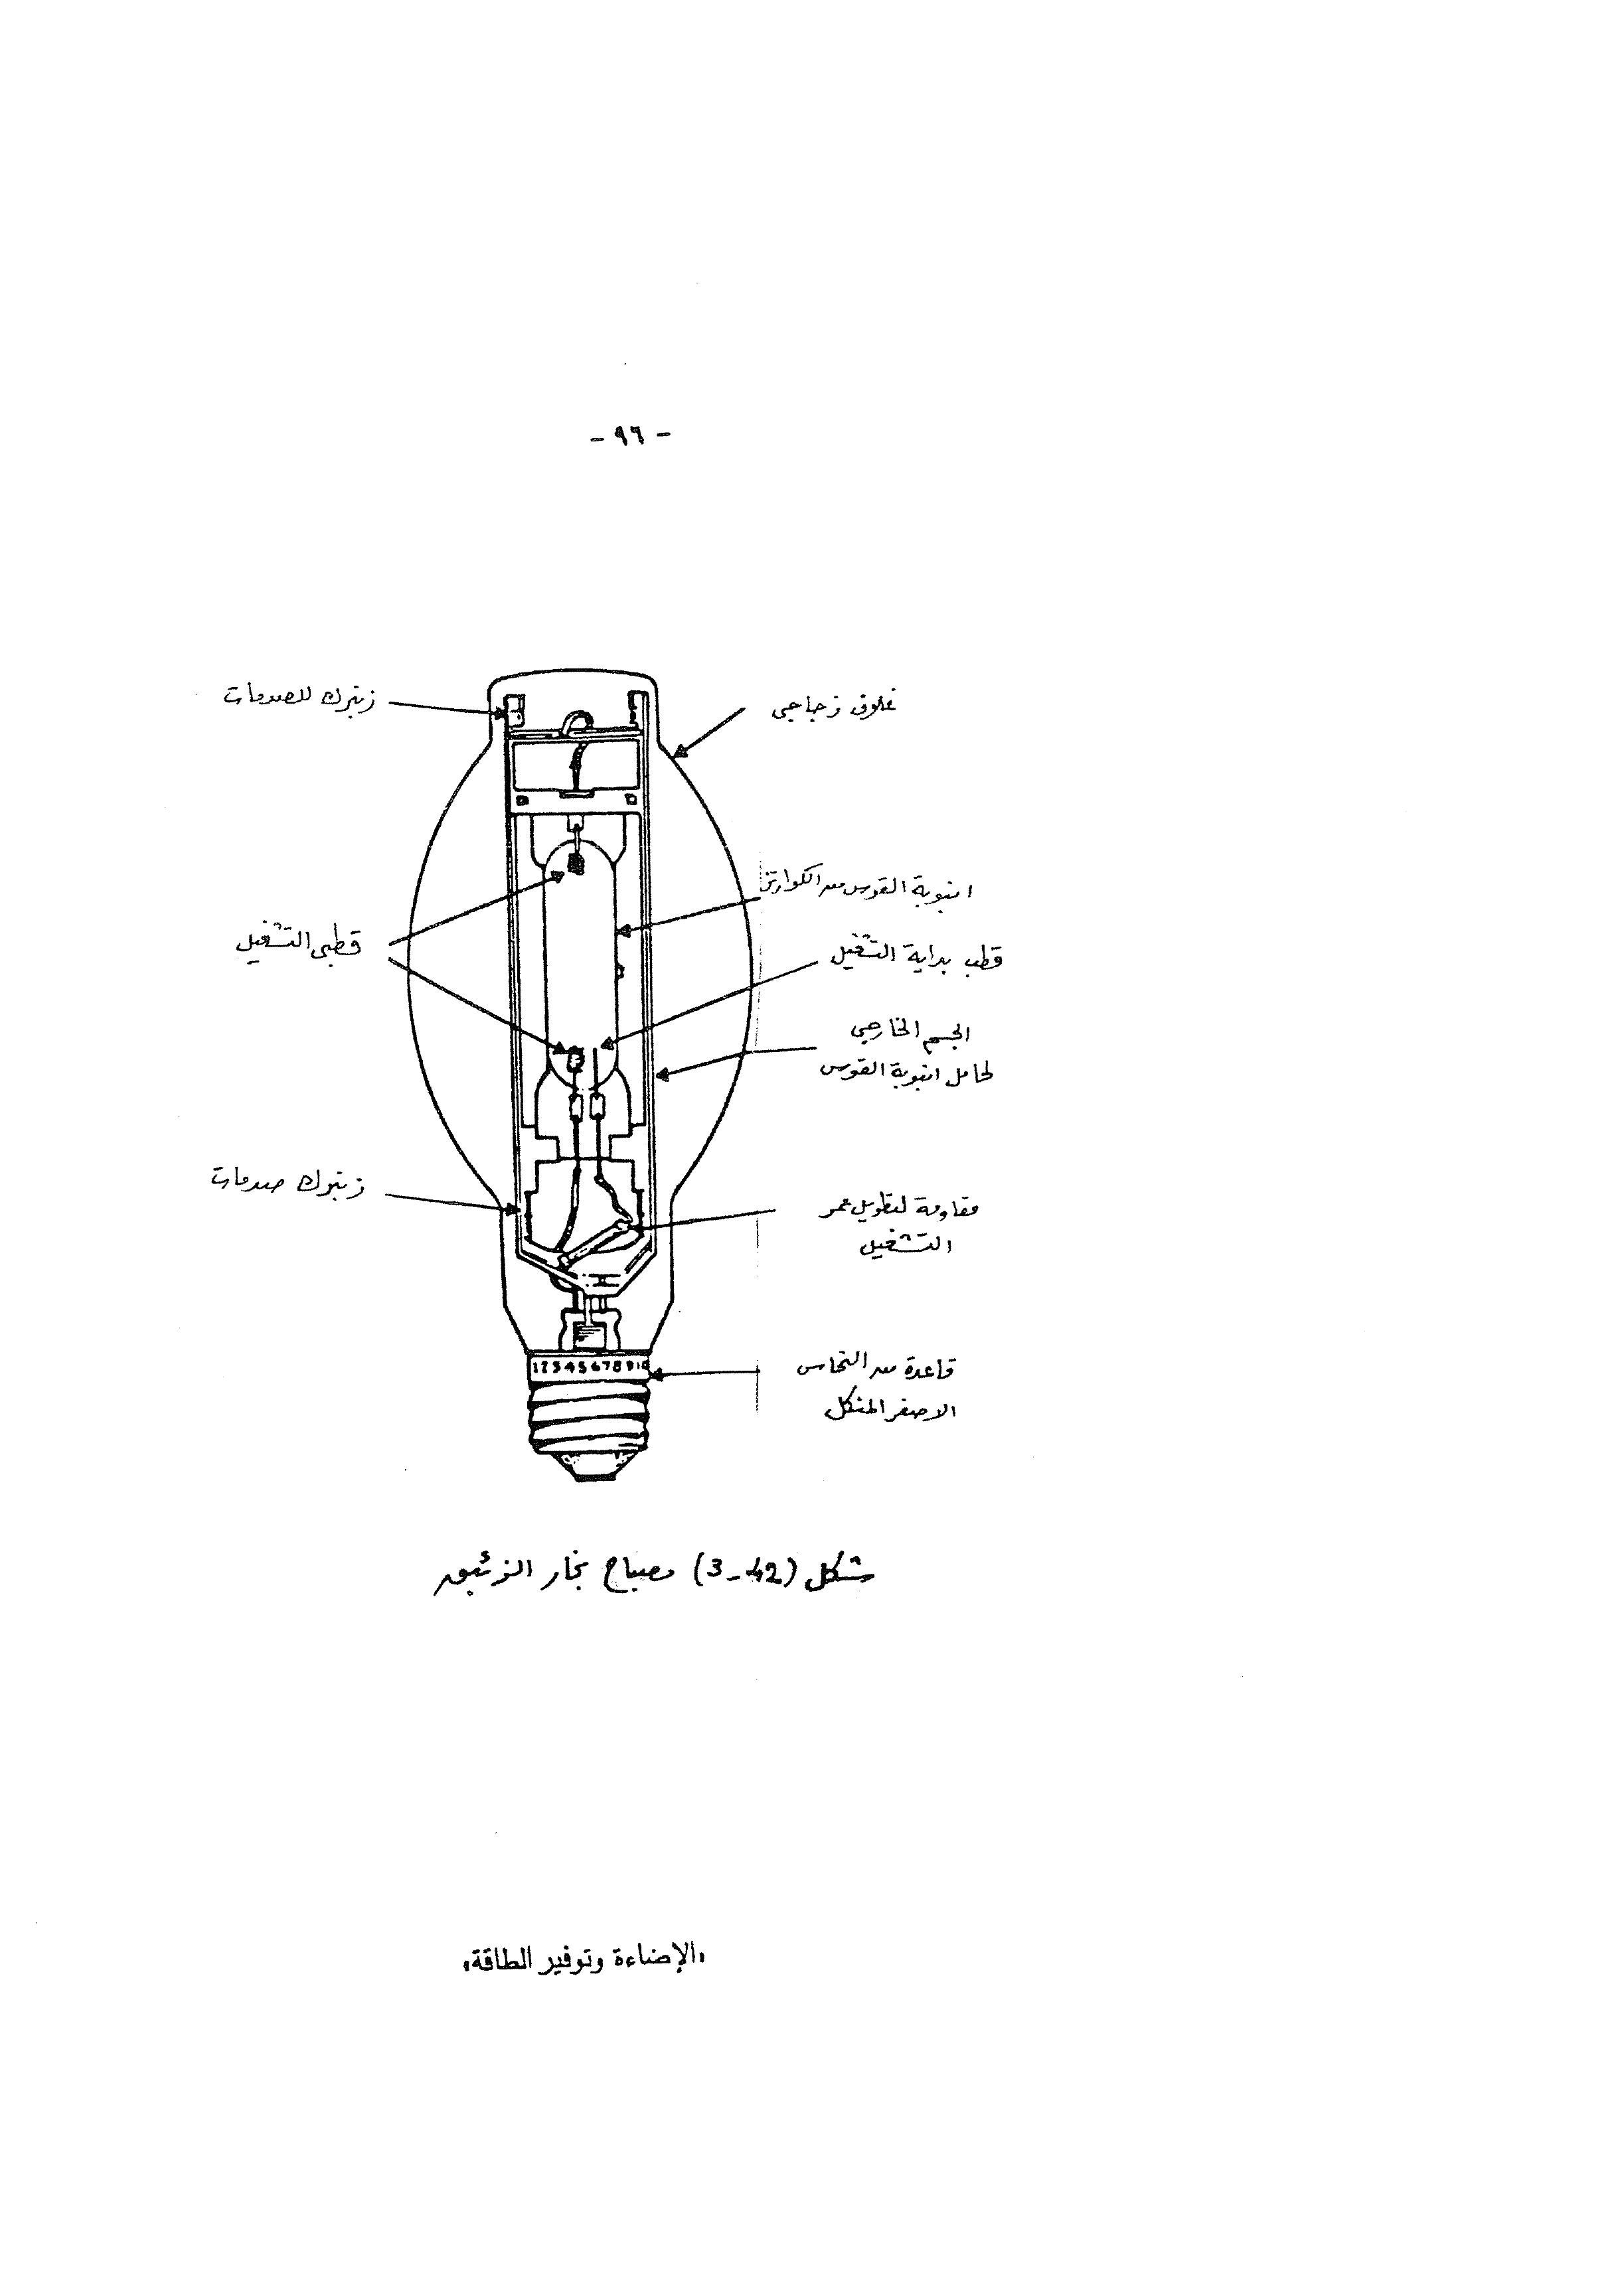 - ٩٦ -
زنبرك للصدمات
غلاف زجاجي
انبوبة القوس من الكوارتز
قطبي التشغيل
قطب بداية التشغيل
الجسم الخارجي
لحامل انبوبة القوس
زنبرك صدمات
مقاومة لتطويل عمر
التشغيل
12345678910
قاعدة من النحاس
الاصفر المنكل
شكل (42-3) مصباح بخار الزئبق
«الإضاءة وتوفير الطاقة»